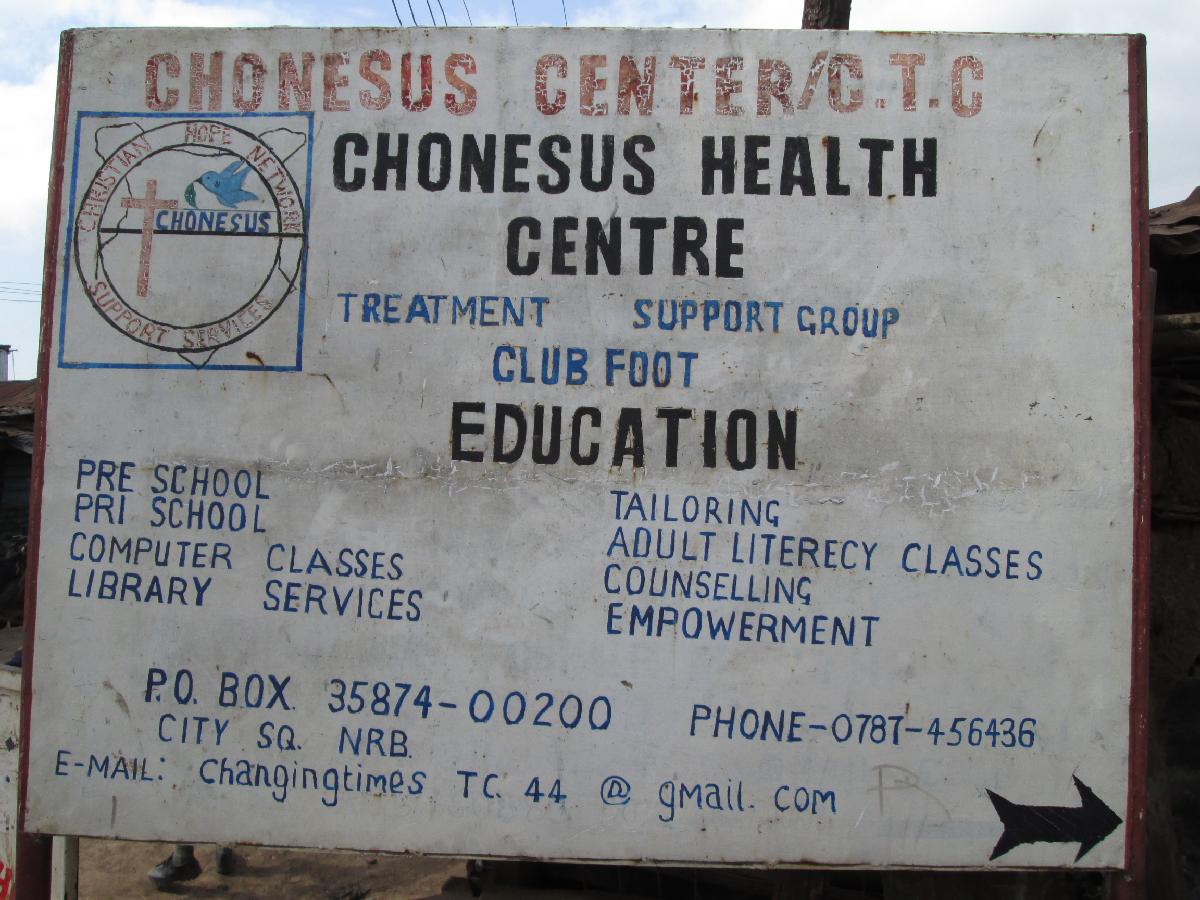 CHONESUS CENTER/C.T.C
CHRISTIAN HOPE NETWORK
CHONESUS
SUPPORT SERVICES
CHONESUS HEALTH
CENTRE
TREATMENT SUPPORT GROUP
CLUB FOOT
EDUCATION
PRE SCHOOL
PRI SCHOOL
COMPUTER CLASSES
LIBRARY SERVICES
TAILORING
ADULT LITERECY CLASSES
COUNSELLING
EMPOWERMENT
P.O. BOX. 35874-00200
CITY SQ. NRB.
PHONE-0787-456436
E-MAIL: changingtimes TC. 44 @ gmail. com
R